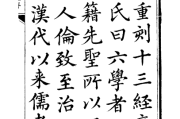 重刻十三經
氏曰六學者
籍先聖所以
人倫致至治
漢代以来儒